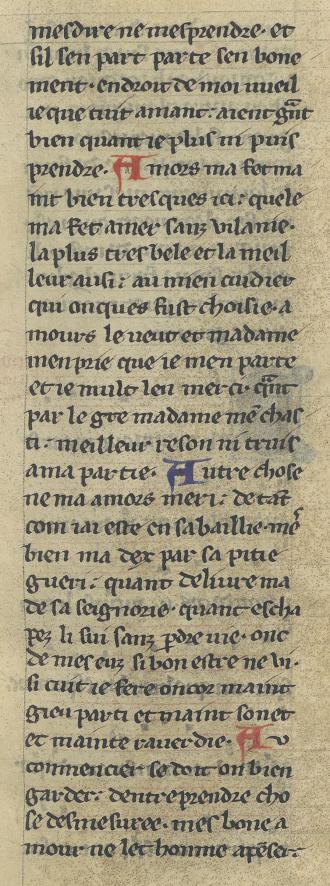 mesdire ne mesprendre · et
sil sen part parte sen bone
ment · endroit de moi vueil
ie que tuit amant : aient gñt
bien quant ie plus ni puis
prendre · Amors ma fet ma
int bien tresques ici : quele
ma fet amer sanz vilanie ·
la plus tres bele et la meil
leur ausi : au mien cuidier
qui onques fust choisie · a
mours le veut et madame
men prie que ie men parte
et ie mult len merci · qãnt
par le gre madame mẽ chas
ti : meilleur reson ni truis
a ma partie · Autre chose
ne ma amors meri : de tãt
com iai este en sa baillie · me᷒
bien ma dex par sa pitie
gueri : quant deliure ma
de sa seignorie · quant escha
pez li sui sanz ꝑdre vie · onc
de mes euz si bon estre ne vi ·
si cuit ie fere oncor maint
gieu parti et maint sonet
et mainte rauerdie · Au
conmencier se doit on bien
garder : dentreprendre cho
se desmesuree · mes bone a
mour ne let homme apẽser :